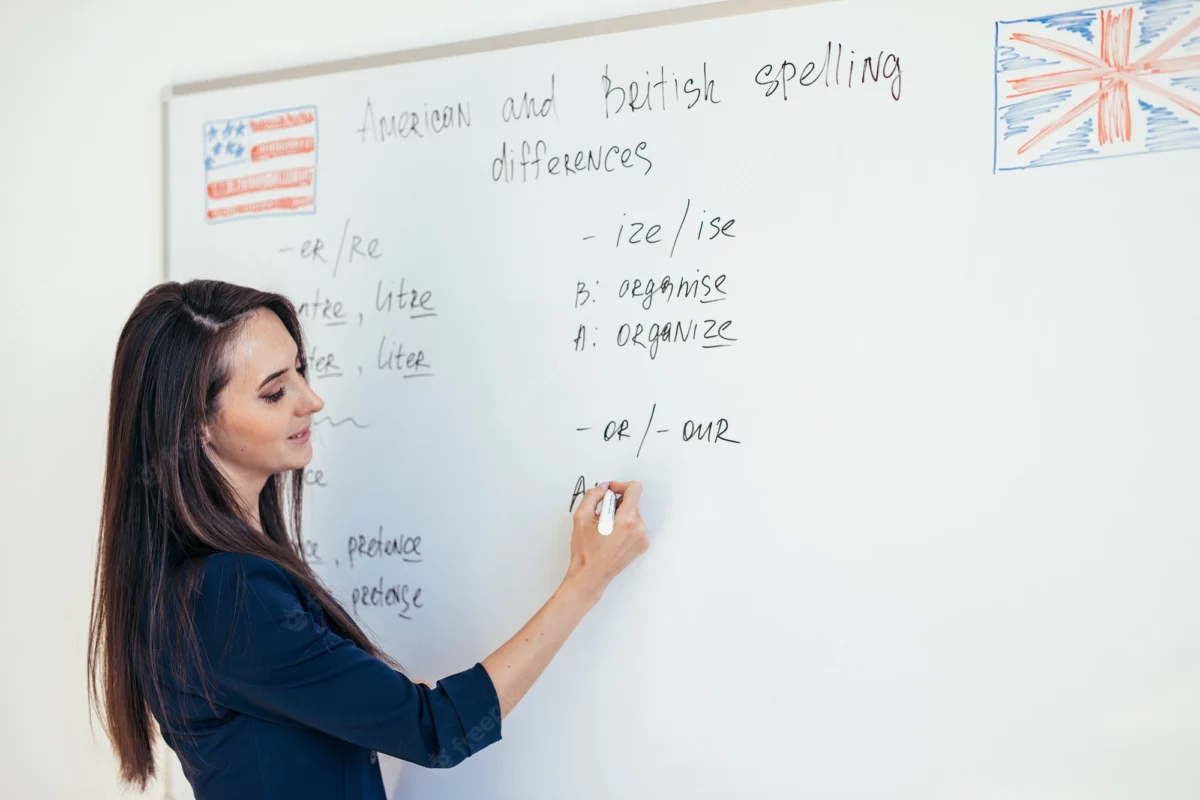 American and British spelling
differences
-er/re
ntre, litre
ter, liter
ce
ce, pretence
pretense
- ize/ise
B: organise
A: organize
- or/- our
A: